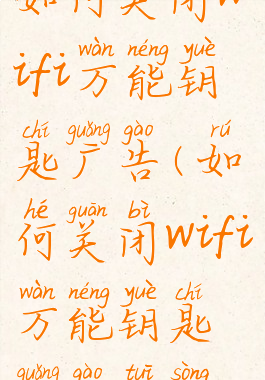 如何关闭w
wàn néng yuè
ifi万能钥
chí guǎng gào rú
匙广告(如
hé guān bì
何关闭wifi
wàn néng yuè chí
万能钥匙
guǎng gào tuī sòng